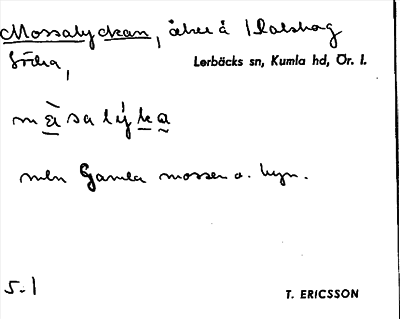 Mossalyckan, åker å 1 Dalshag
Södra,
Lerbäcks sn, Kumla hd, Ör. l.
m å̀ s a l ý k a
mln Gamla mossen o. byn.
5.1
T. ERICSSON